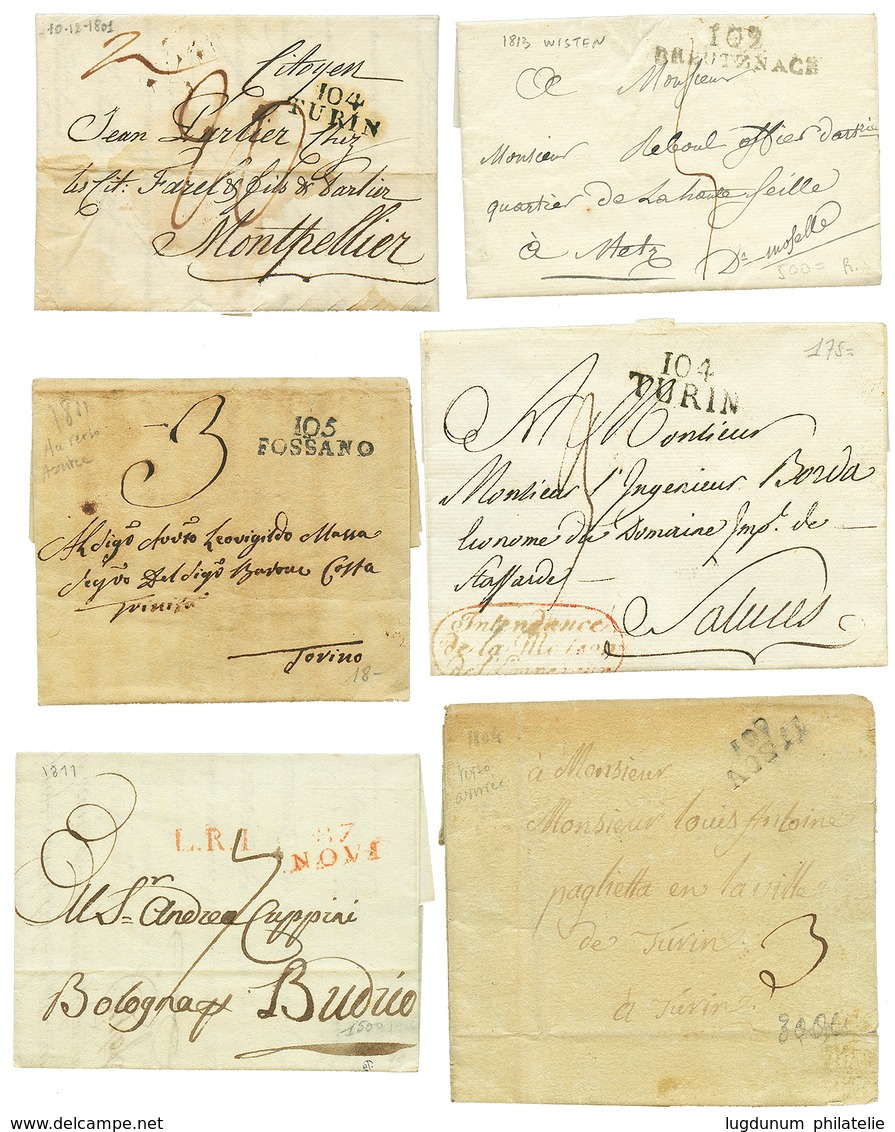 10-12-1801
2
Citoyen
104
TURIN
Jean Parlier chez
les Cit: Farel & fils & Parlier
Montpellier
1813 WISTEN
102
CREUTZNACH
A Monsieur
Monsieur Reboul officier d'artrie
quartier de La haute Seille
à Metz
Dt moselle
500= R.
1811
Au verso
3
105
FOSSANO
Al Sigr Avvto Leovigildo Massa
Segro Del Sigr Barone Costa
Trinità
Torino
18-
175=
104
TURIN
A Monsieur
Monsieur l'Ingenieur Borda
Econome du Domaine Impl. de
Staffarde
Saluces
Intendance
de la Maison
de l'Empereur
1811
L.R.I
87
NOVI
Sr. Andrea Cuppini
Bologna Budrio
1500
1804
verso
107
AOSTE
à Monsieur
Monsieur louis Antoine
paglietta en la ville
de Turin
à Turin
3
www.delcampe.net
lugdunum philatelie